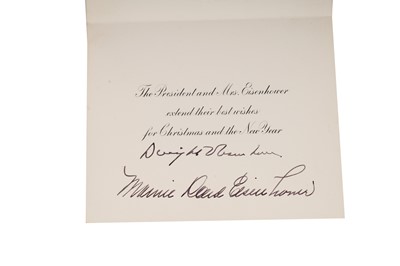 The President and Mrs. Eisenhower
extend their best wishes
for Christmas and the New Year
Dwight Eisenhower
Mamie Doud Eisenhower